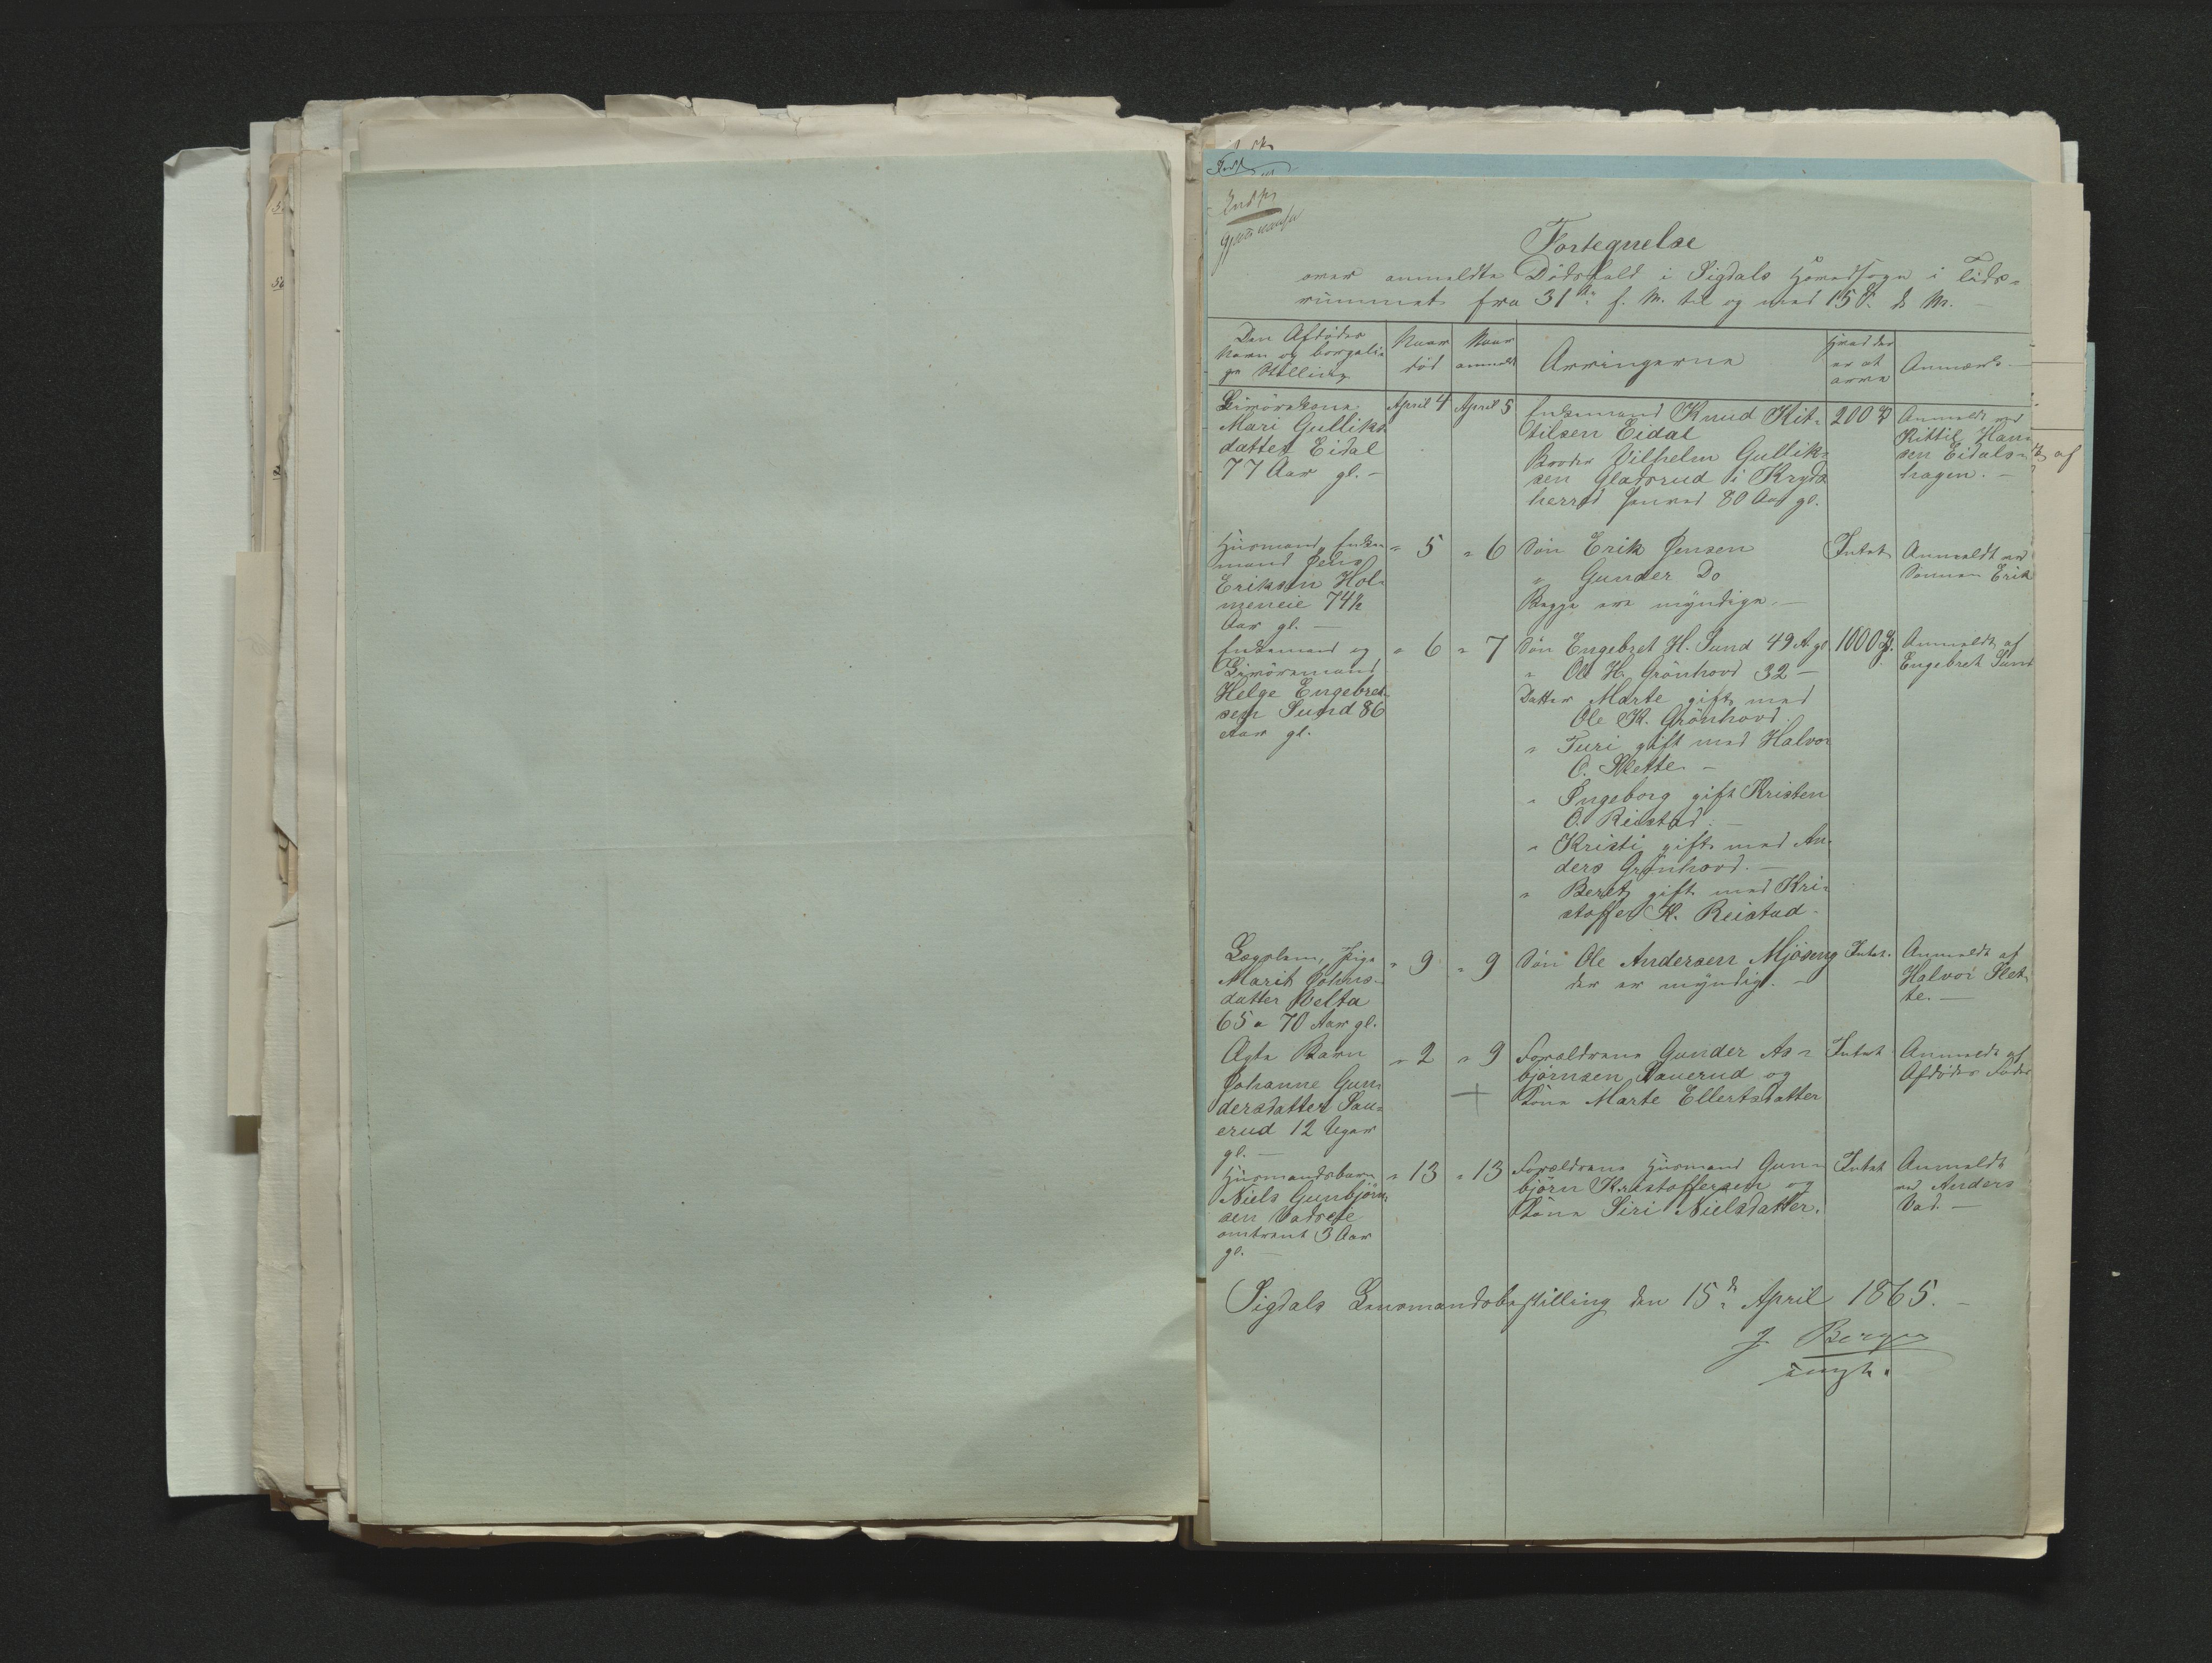 Fortegnelse
over anmeldte Dödsfald i Sigdals Hovedsogn i Tids-
rummet fra 31te f. M. til og med 15de d. M.
Den Afdödes
Navn og borgerli-
ge Stilling
Naar
död
Naar
anmeldt
Arvingerne
Hvad der
er at
arve
Anmærk.
Livörskone
Mari Gulliks-
datter Eidal
77 Aar gl. -
April 4
April 5
Enkemand Knud Kit-
tilsen Eidal
Broder Vilhelm Gullik-
sen Gladsrud i Kryds-
herred henved 80 Aar gl.
200 Spd
Anmeldt ved
Kittil Han-
sen Eidals-
hagen. -
Husmand, Enke-
mand Jens
Eriksen Hol-
meneie 74½
Aar gl. -
" 5
" 6
Sön Erik Jensen
" Gunder Do
Begge ere myndige. -
Intet
Anmeldt ved
Sönnen Erik
Enkemand og
Livörsmand
Helge Engebret-
sen Sund 86
Aar gl.
" 6
" 7
Sön Engebret H. Sund 49 A. gl.
" Ole H. Grönhovd 32 -
Datter Marte gift med
Ole K. Grönhovd.
" Turi gift med Halvor
O. Slette -
" Ingeborg gift Kristen
O. Reistad. -
" Kristi gift med An-
ders Grönhovd. -
" Beret gift med Kri-
stoffer H. Reistad.
1000 Spd.
Anmeldt af
Engebret Sund
Lægslem, Pige
Marit Johns-
datter Velta
65 a 70 Aar gl.
" 9
" 9
Sön Ole Andersen Mjöseng
der er myndig. -
Intet.
Anmeldt af
Halvor Slet-
te. -
Ægte Barn
Johanne Gun-
dersdatter Sau-
erud 12 Uger
gl. -
" 2
" 9
Forældrene Gunder As-
björnsen Sauerud og
Kone Marte Ellertsdatter
Intet
Anmeldt af
Afdödes Fader
Husmandsbarn
Niels Gunbjörn-
sen Vadseie
omtrent 3 Aar
gl. -
" 13
" 13
Forældrene Husmand Gun-
björn Kristoffersen og
Kone Siri Nielsdatter.
Intet
Anmeldt
ved Anders
Vad. -
Sigdals Lensmandsbestilling den 15de April 1865. -
J Berger